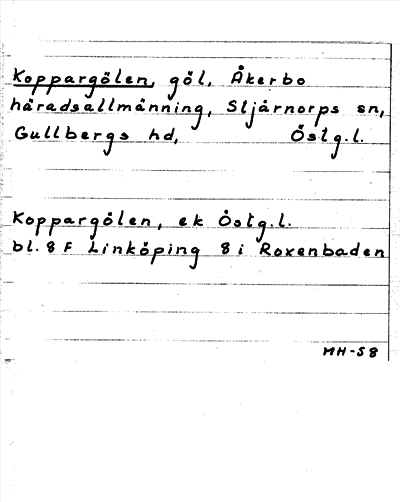 Koppargölen, göl, Åkerbo
häradsallmänning, Stjärnorps sn,
Gullbergs hd, Östg.l.
Koppargölen, ek Östg.l.
bl. 8 F Linköping 8 i Roxenbaden
MH-58